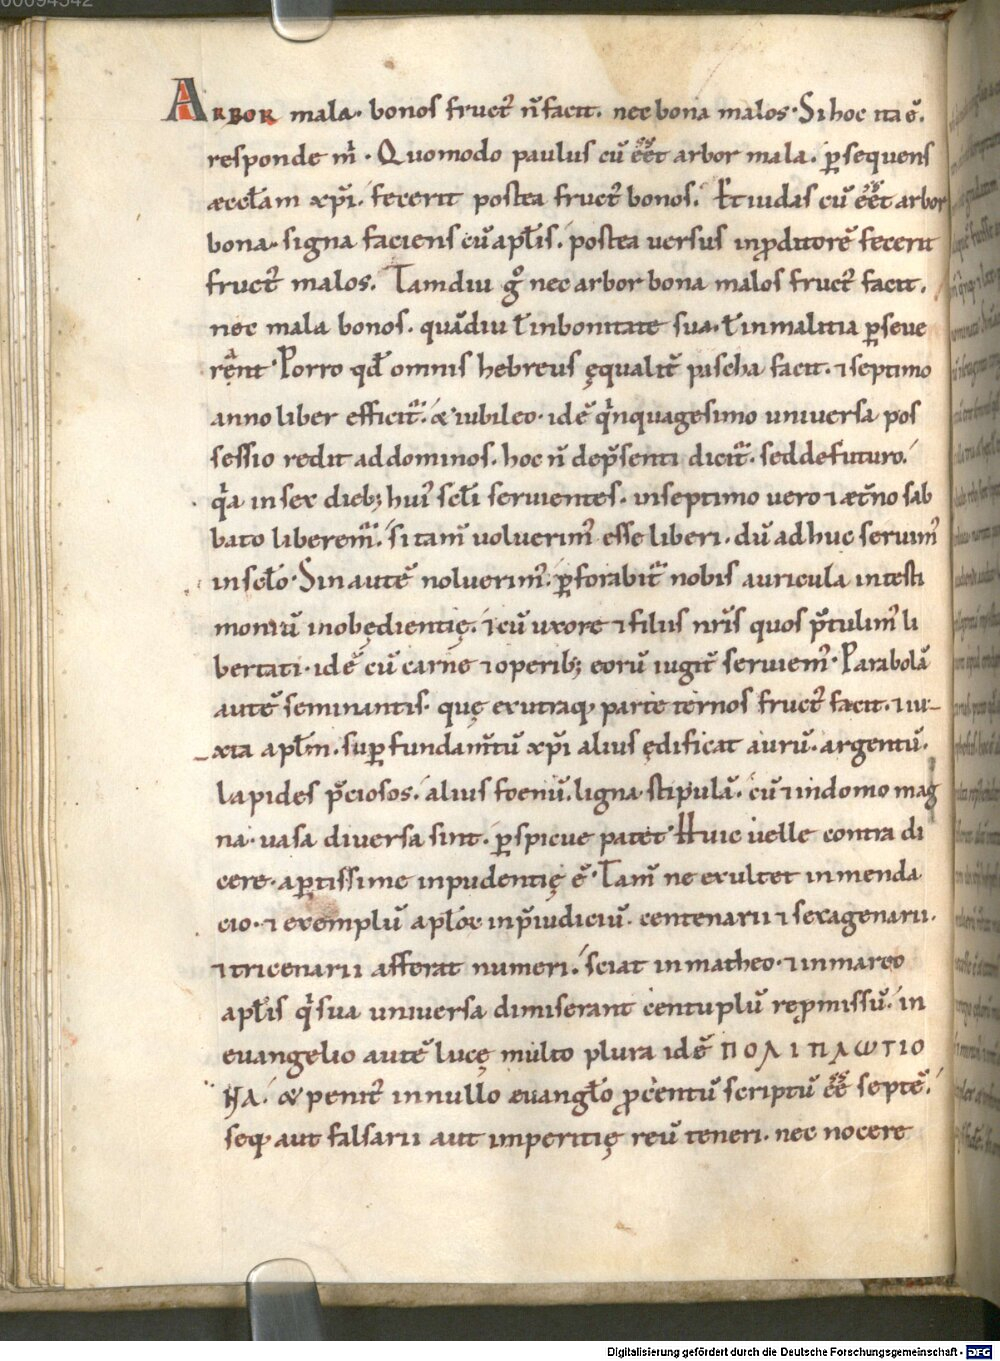 ARBOR mala· bonos fruct᷒ n̄ facit. nec bona malos· Si hoc ita ē.
responde m̄· Quomodo paulus cū eēt arbor mala. ꝑsequens
æccłam xp̄i. fecerit postea fruct᷒ bonos. Et iudas cū eēt arbor
bona· signa faciens cū apłis. postea uersus inꝓditorē fecerit
fruct᷒ malos. Tamdiu gͦ nec arbor bona malos fruct᷒ facit.
nec mala bonos. quādiu ł inbonitate sua· ł inmalitia ꝑseue
rent· Porro qđ omnis hebreus ęqualit̄ pascha facit. ⁊ septimo
anno liber efficit᷒. & iubileo· idē qͥnquagesimo uniuersa pos
sessio redit addominos. hoc n̄ dep̄senti dicit᷒. seddefuturo.
qͥa insex dieb; hui᷒ scłi seruientes. inseptimo uero ⁊ æt̄no sab
bato liberem᷒. si tam̄ uoluerim᷒ esse liberi. dū adhuc seruim᷒
inscło· Sin autē noluerim᷒. ꝑforabit᷒ nobis auricula intesti
moniū inobędientię. ⁊ cū uxore ⁊ filiis nr̄is quos p̄tulim᷒ li
bertati· idē cū carne ⁊ operib; eorū iugit̄ seruiem᷒· Parabolā
autē seminantis· quę exutraq; parte ternos fruct᷒ facit. ⁊ iu-
-xta apłm. suꝑ fundam̄tū xp̄i alius ędificat aurū· argentū.
lapides p̄ciosos. alius foenū. ligna· stipulā. cū ⁊ indomo mag
na· uasa diuersa sint. ꝑspicue patet· Huic uelle contra di
cere· aꝑtissime inpudentię ē· Tam̄ ne exultet inmenda
cio· ⁊ exemplū apłoꝝ inp̄iudiciū. centenarii ⁊ sexagenarii.
⁊ tricenarii afferat numeri. sciat inmatheo· ⁊ inmarco
apłis qͥ sua uniuersa dimiserant centuplū reꝓmissū. in
euangelio autē lucę multo plura idē ΠΟΛΙΠΛωΤΙΟ
ΗΛ. & penit᷒ innullo æuangło ꝓcentū scriptū eē septē.
seq; aut falsarii aut imperitię reū teneri. nec nocere
Digitalisierung gefördert durch die Deutsche Forschungsgemeinschaft - DFG